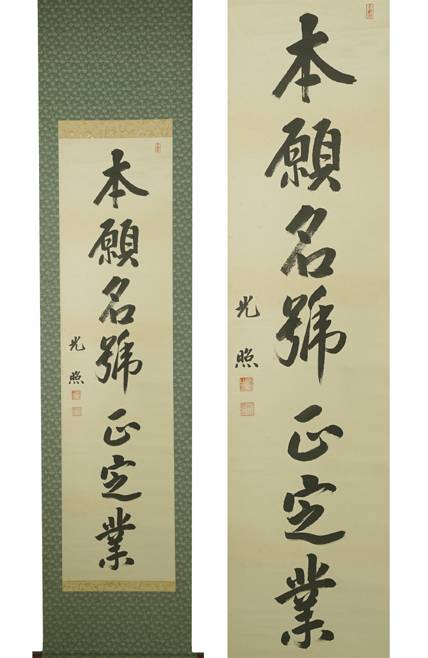 本願名號正定業
光照
本願名號正定業
光照